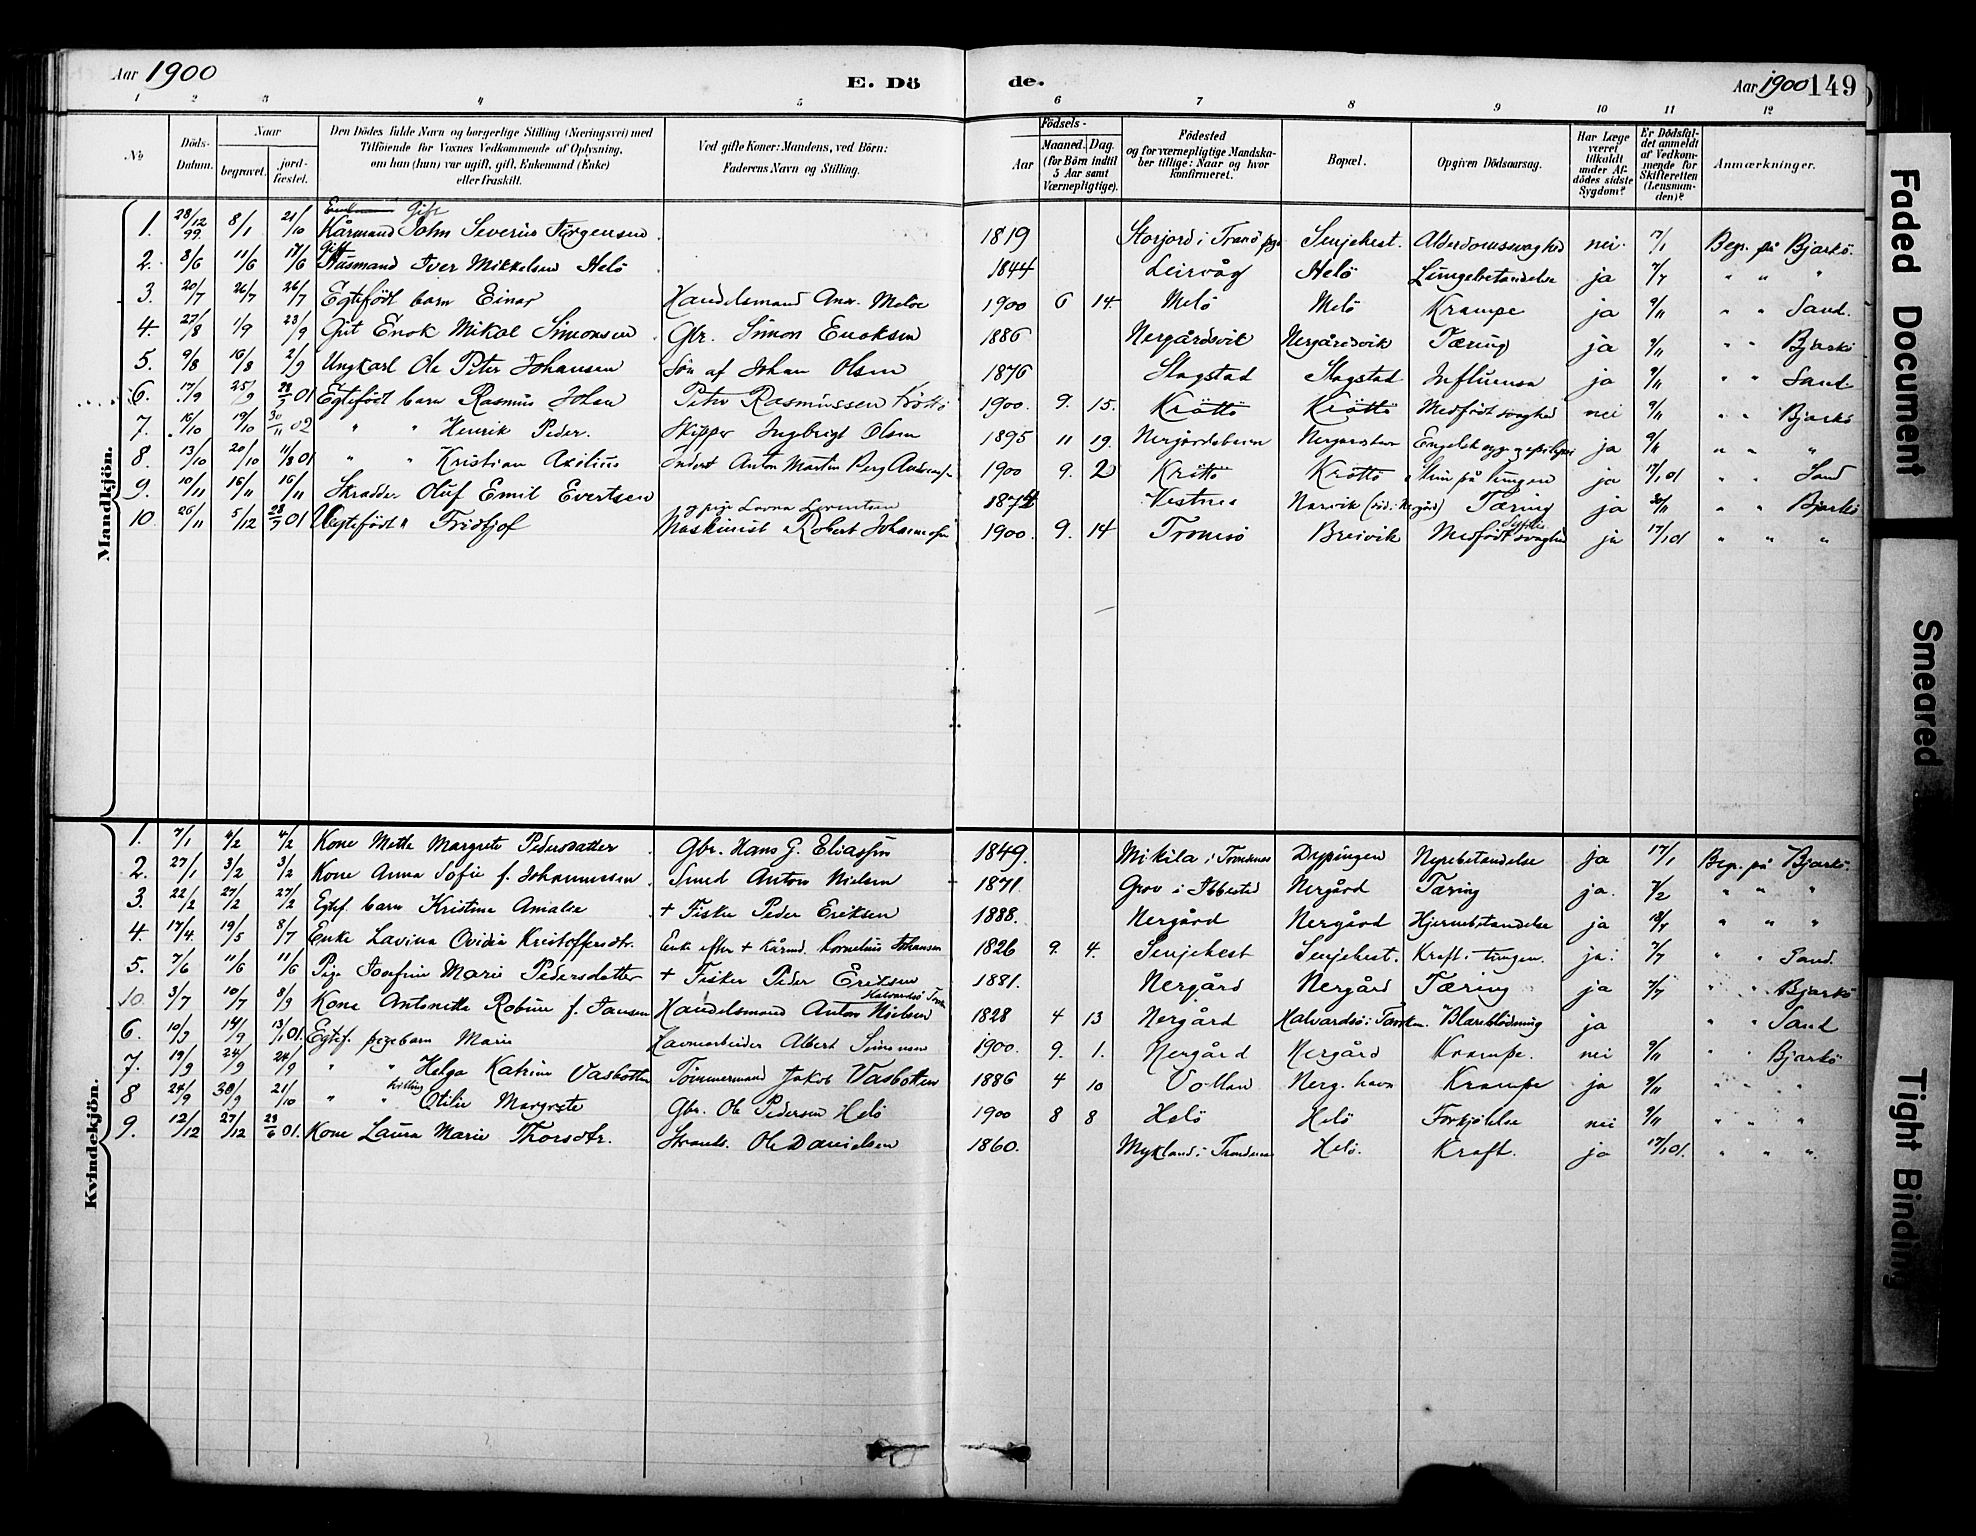 Aar 1900
E. Dö de.
Aar 1900 149
1 2 3 4 5 6 7 8 9 10 11 12
No
Döds-Datum.
Naar
begravet. jord-fæstet.
Den Dödes fulde Navn og borgerlige Stilling (Næringsvei) med Tilföiende for Voxnes Vedkommende af Oplysning, om han (hun) var ugift, gift, Enkemand (Enke) eller fraskilt.
Ved gifte Koner: Mandens, ved Börn: Faderens Navn og Stilling.
Födsels-
Aar Maaned. Dag.
(for Börn indtil 5 Aar samt Værnepligtige).
Födested og for værnepligtige Mandskaber tillige: Naar og hvor konfirmeret.
Bopæl.
Opgiven Dödsaarsag.
Har Læge været tilkaldt under Afdödes sidste Sygdom?
Er Dödsfaldet anmeldt af Vedkommende for Skifteretten (Lensmanden)?
Anmærkninger.
Mandkjön.
1. 28/12 99 8/1 21/10 Gift Kårmand John Severin Jörgensen 1819 Storjord i Tranö Senjehest. Alderdomssvaghed nei 7/1 Begr. på Bjarkö.
2. 3/6 11/6 17/6 Gift Husmand Iver Mikkelsen Helö 1844 Leirvåg Helö Lungebetændelse ja 7/7 " " "
3. 20/7 26/7 26/7 Egtefödt barn Einar Handelsmand And. Meløe 1900 6 14. Melö Melö Krampe ja 9/11 " " Sand.
4. 27/8 1/9 23/9 Gut Enok Mikal Simonsen Gbr. Simon Enoksen 1886 Nergårdsvik Nergårdsvik Tæring ja 9/11 " " Bjarkö
5. 9/8 16/8 2/9 Ungkarl Ole Peter Johansen Sön af Johan Olsen 1876 Slagstad Slagstad Influensa ja 9/11 " " Sand.
6. 17/9 25/9 28/5 01 Egtefödt barn Rasmus Johan Peter Rasmussen Kröttö 1900. 9. 15. Kröttö Kröttö Medfödt svaghed nei 9/11 " " Bjarkö
7. 16/10 19/10 30/11 02 " " Henrik Peder. Skipper Ingbrigt Olsen 1895 11 19. Nergårdshavn Nergårdshavn Engelsk syge ja 9/11 " " "
8. 13/10 20/10 11/8 01 " " Kristian Axelius Inderst Anton Martin Berg 1900 9. 2 Kröttö Kröttö ja 17/1 01 " " Sand
9. 10/11 16/11 16/11 Skrædder Oluf Emil Evertsen 1874 Vestnes Narvik Tæring ja 30/11 " " Bjarkö
10. 26/11 5/12 28/7 01 Uegtefödt " Fridtjof Maskinist Robert Johannesen og pige Lovna Lorentsen 1900. 9. 14 Tromsö Breivik Medfödt svaghed Syfilis ja 17/1 01 " " "
Kvindekjön.
1. 7/1 4/2 4/2 Kone Mette Margrete Pedersdatter Gbr. Hans G. Eliassen 1849. Mikila i Trondenes Dypingen Nyrebetændelse ja 17/1 Begr. på Bjarkö.
2. 27/1 3/2 3/2 Kone Anna Sofie f. Johannessen Smed Anton Nielsen 1871. Grov i Ibbestad Nergård Tæring ja. 7/2 " " "
3. 22/2 27/2 27/2 Egtef. barn Kristine Amalie + Fisker Peder Eriksen 1888. Nergård Nergård Hjernebetændelse ja " " "
4. 17/4 19/5 8/7 Enke Lavina Ovidia Kristoffersdtr. Enke efter + Kårmd. Kornelius Johansen 1826 9. 4. Senjehest Senjehest. Kræft i tungen. ja. 7/7 " " Sand.
5. 7/6 11/6 11/6 Pige Josefine Marie Pedersdatter + Fisker Peder Eriksen 1881. Nergård Nergård Tæring ja 7/7 " " Bjarkö
10. 3/7 10/7 8/9 Kone Antonette Robine f. Jansen Handelsmand Anton Nielsen Halvardsö 1828 4 13 Nergård Halvardsö i Torsken. Blæreblödning ja " " Sand
6. 10/9 14/9 13/1 01. Egtef. pigebarn Marie Havnearbeider Albert Simonsen 1900. 9. 1. Nergård Nergård Krampe. nei 9/11 " " Bjarkö
7. 19/9 24/9 24/9 " " Helga Katrine Vasbotten Tömmermand Jakob Vasbotten 1886 4 10 Volland Nerg. havn Krampe ja 9/11 " " "
8 24/9 30/9 21/10 " " tvilling Otilie Margrete Gbr. Ole Pedersen Helö 1900 8 8 Helö Helö Forkjölelse nei 9/11 " " "
9. 12/12 27/12 23/6 01. Kone Laura Marie Thorsdtr. Strands. Ole Danielsen 1860. Mykland i Trondenes Helö. Kræft. ja 17/1 01. " " "
Faded Document
Smeared
Tight Binding